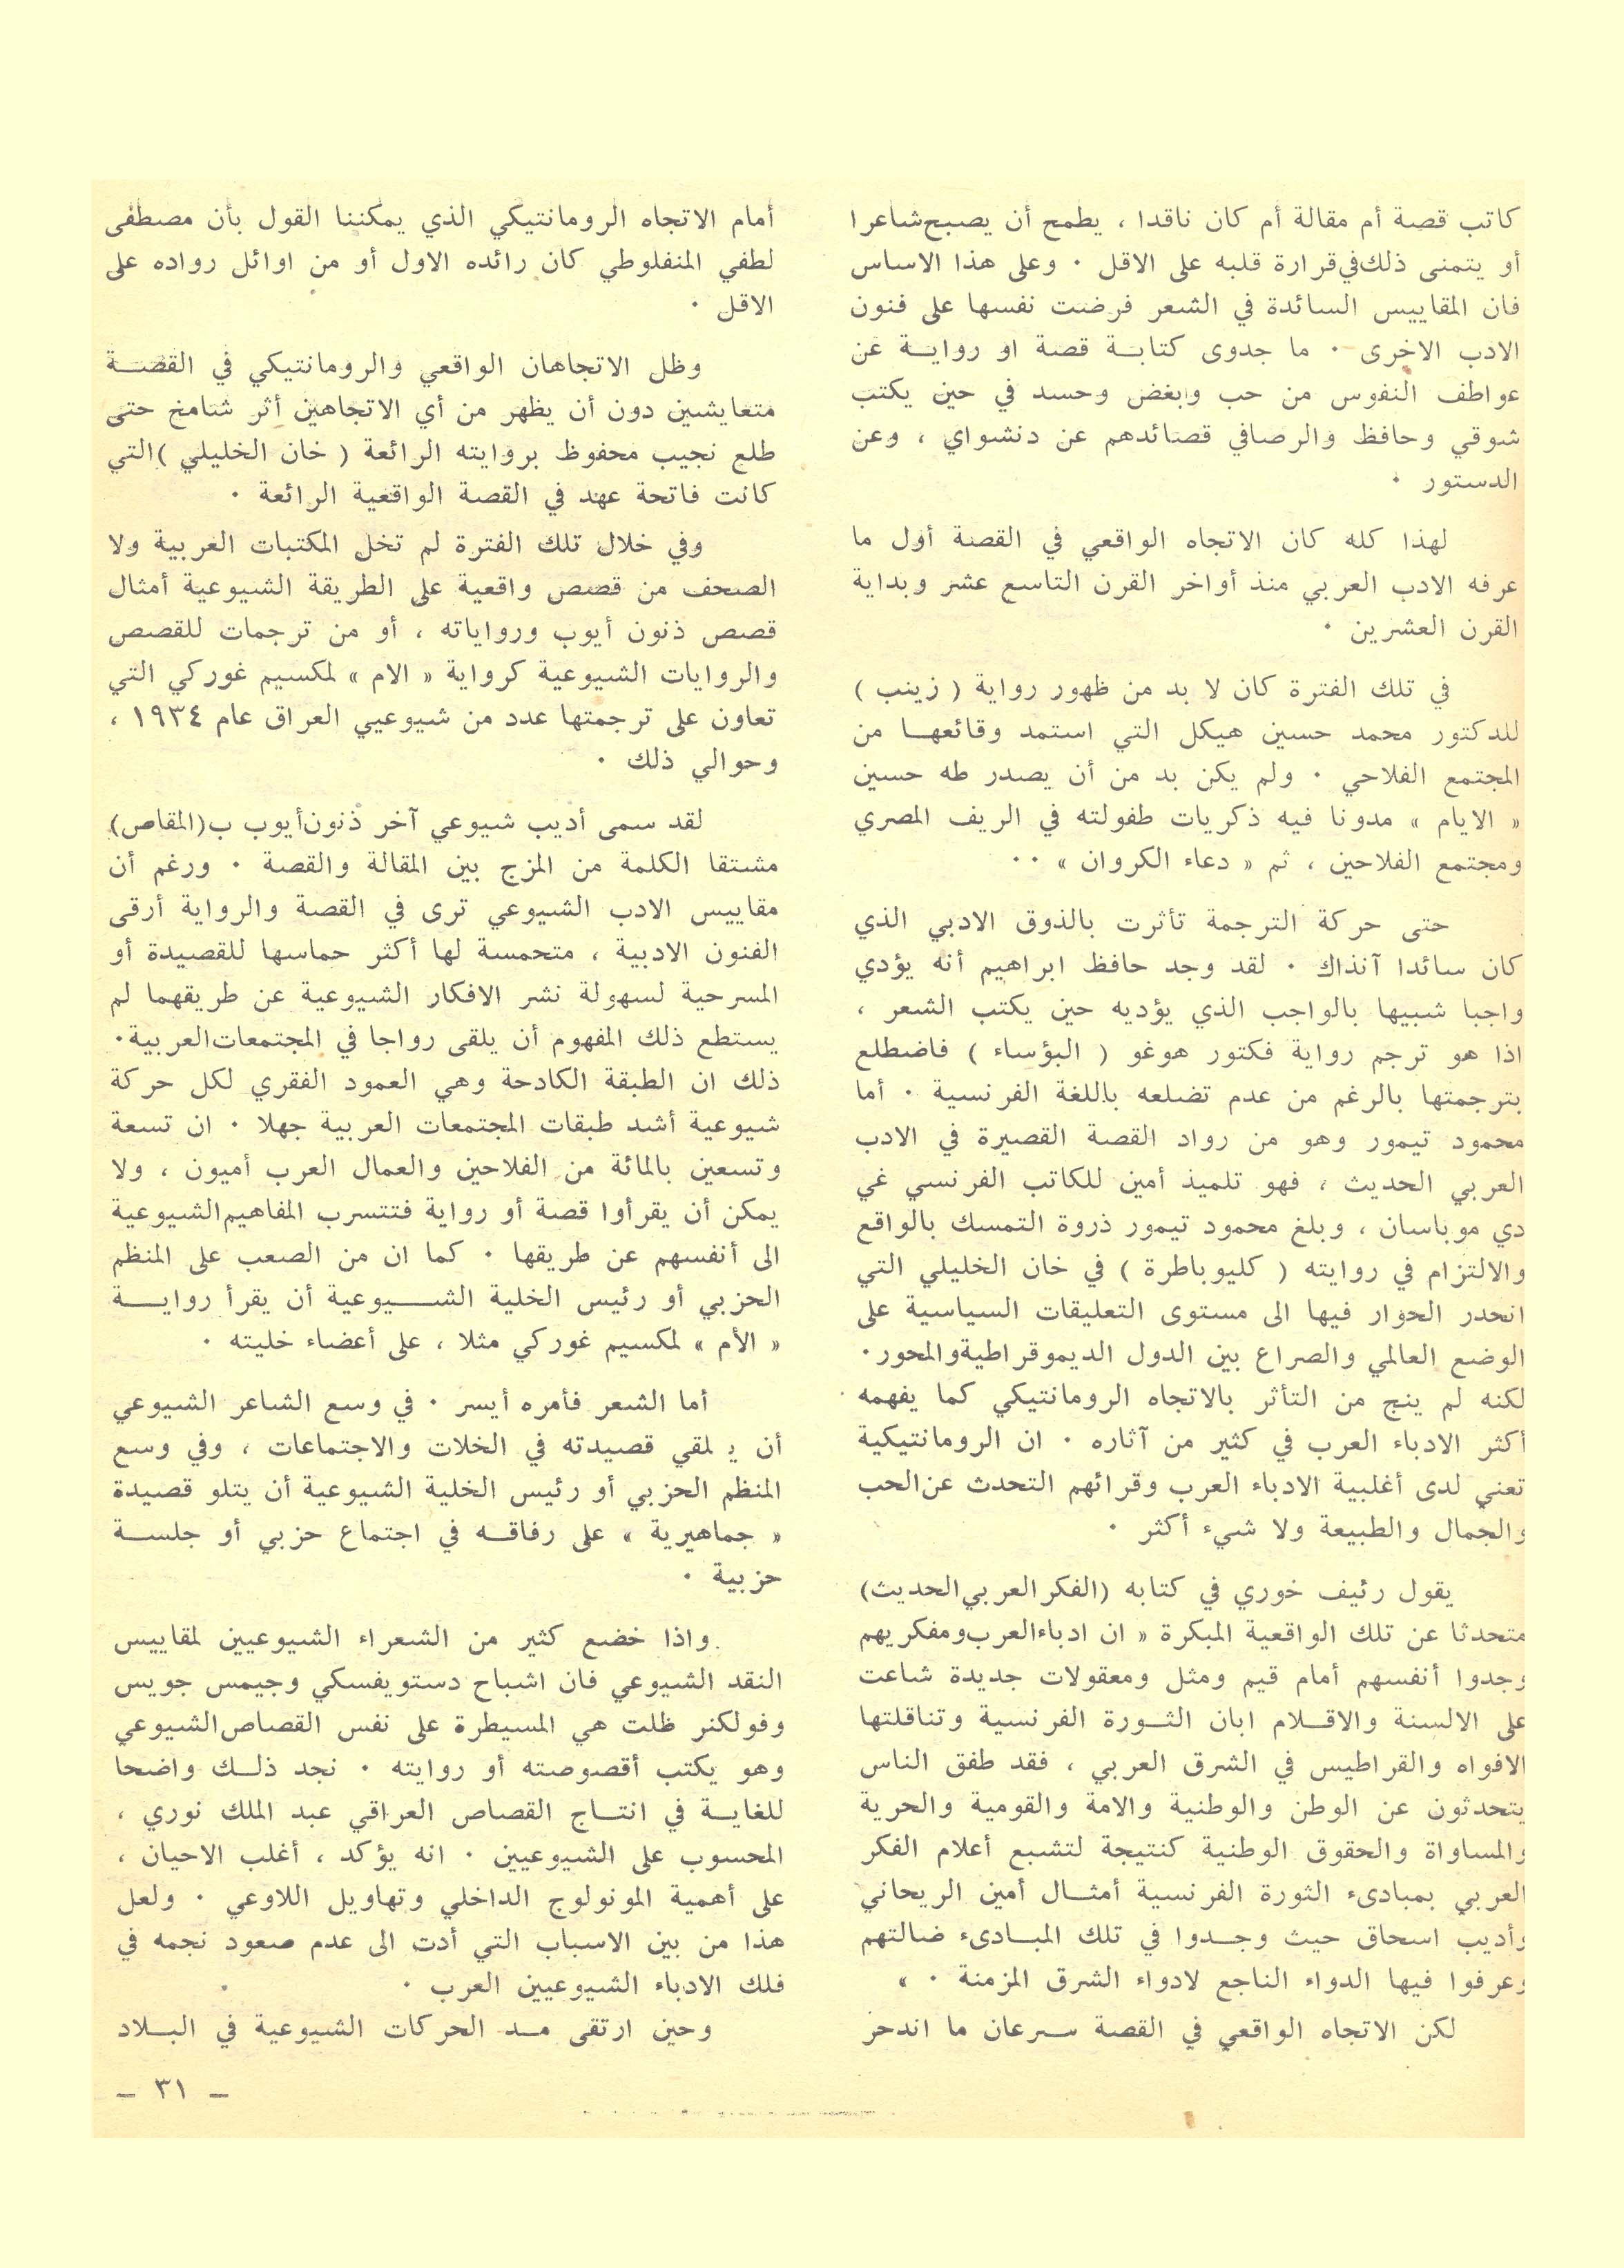 كاتب قصة أم مقالة أم كان ناقدا ، يطمح أن يصبح شاعرا
أو يتمنى ذلك في قرارة قلبه على الاقل . وعلى هذا الاساس
فان المقاييس السائدة في الشعر فرضت نفسها على فنون
الادب الاخرى . ما جدوى كتابة قصة او رواية عن
عواطف النفوس من حب وبغض وحسد في حين يكتب
شوقي وحافظ والرصافي قصائدهم عن دنشواي ، وعن
الدستور .
لهذا كله كان الاتجاه الواقعي في القصة أول ما
عرفه الادب العربي منذ أواخر القرن التاسع عشر وبداية
القرن العشرين .
في تلك الفترة كان لا بد من ظهور رواية ( زينب )
للدكتور محمد حسين هيكل التي استمد وقائعها من
المجتمع الفلاحي . ولم يكن بد من أن يصدر طه حسين
« الايام » مدونا فيه ذكريات طفولته في الريف المصري
ومجتمع الفلاحين ، ثم « دعاء الكروان » . .
حتى حركة الترجمة تأثرت بالذوق الادبي الذي
كان سائدا آنذاك . لقد وجد حافظ ابراهيم أنه يؤدي
واجبا شبيها بالواجب الذي يؤديه حين يكتب الشعر ،
اذا هو ترجم رواية فكتور هوغو ( البؤساء ) فاضطلع
بترجمتها بالرغم من عدم تضلعه باللغة الفرنسية . أما
محمود تيمور وهو من رواد القصة القصيرة في الادب
العربي الحديث ، فهو تلميذ أمين للكاتب الفرنسي غي
دي موباسان ، وبلغ محمود تيمور ذروة التمسك بالواقع
والالتزام في روايته ( كليوباطرة ) في خان الخليلي التي
انحدر الحوار فيها الى مستوى التعليقات السياسية على
الوضع العالمي والصراع بين الدول الديموقراطية والمحور .
لكنه لم ينج من التأثر بالاتجاه الرومانتيكي كما يفهمه
أكثر الادباء العرب في كثير من آثاره . ان الرومانتيكية
تعني لدى أغلبية الادباء العرب وقرائهم التحدث عن الحب
والجمال والطبيعة ولا شيء أكثر .
يقول رئيف خوري في كتابه (الفكر العربي الحديث)
متحدثا عن تلك الواقعية المبكرة « ان ادباء العرب ومفكريهم
وجدوا أنفسهم أمام قيم ومثل ومعقولات جديدة شاعت
على الالسنة والاقلام ابان الثورة الفرنسية وتناقلتها
الافواه والقراطيس في الشرق العربي ، فقد طفق الناس
يتحدثون عن الوطن والوطنية والامة والقومية والحرية
والمساواة والحقوق الوطنية كنتيجة لتشبع أعلام الفكر
العربي بمبادىء الثورة الفرنسية أمثال أمين الريحاني
وأديب اسحاق حيث وجدوا في تلك المبادىء ضالتهم
وعرفوا فيها الدواء الناجع لادواء الشرق المزمنة . »
لكن الاتجاه الواقعي في القصة سرعان ما اندحر
أمام الاتجاه الرومانتيكي الذي يمكننا القول بأن مصطفى
لطفي المنفلوطي كان رائده الاول أو من اوائل رواده على
الاقل .
وظل الاتجاهان الواقعي والرومانتيكي في القصة
متعايشين دون أن يظهر من أي الاتجاهين أثر شامخ حتى
طلع نجيب محفوظ بروايته الرائعة ( خان الخليلي ) التي
كانت فاتحة عهد في القصة الواقعية الرائعة .
وفي خلال تلك الفترة لم تخل المكتبات العربية ولا
الصحف من قصص واقعية على الطريقة الشيوعية أمثال
قصص ذنون أيوب ورواياته ، أو من ترجمات للقصص
والروايات الشيوعية كرواية « الام » لمكسيم غوركي التي
تعاون على ترجمتها عدد من شيوعيي العراق عام ١٩٣٤ ،
وحوالي ذلك .
لقد سمى أديب شيوعي آخر ذنون أيوب ب(المقاص)
مشتقا الكلمة من المزج بين المقالة والقصة . ورغم أن
مقاييس الادب الشيوعي ترى في القصة والرواية أرقى
الفنون الادبية ، متحمسة لها أكثر حماسها للقصيدة أو
المسرحية لسهولة نشر الافكار الشيوعية عن طريقهما لم
يستطع ذلك المفهوم أن يلقى رواجا في المجتمعات العربية .
ذلك ان الطبقة الكادحة وهي العمود الفقري لكل حركة
شيوعية أشد طبقات المجتمعات العربية جهلا . ان تسعة
وتسعين بالمائة من الفلاحين والعمال العرب أميون ، ولا
يمكن أن يقرأوا قصة أو رواية فتتسرب المفاهيم الشيوعية
الى أنفسهم عن طريقها . كما ان من الصعب على المنظم
الحزبي أو رئيس الخلية الشيوعية أن يقرأ رواية
« الأم » لمكسيم غوركي مثلا ، على أعضاء خليته .
أما الشعر فأمره أيسر . في وسع الشاعر الشيوعي
أن يلقي قصيدته في الخلات والاجتماعات ، وفي وسع
المنظم الحزبي أو رئيس الخلية الشيوعية أن يتلو قصيدة
« جماهيرية » على رفاقه في اجتماع حزبي أو جلسة
حزبية .
واذا خضع كثير من الشعراء الشيوعيين لمقاييس
النقد الشيوعي فان اشباح دستويفسكي وجيمس جويس
وفولكنر ظلت هي المسيطرة على نفس القصاص الشيوعي
وهو يكتب أقصوصته أو روايته . نجد ذلك واضحا
للغاية في انتاج القصاص العراقي عبد الملك نوري ،
المحسوب على الشيوعيين . انه يؤكد ، أغلب الاحيان ،
على أهمية المونولوج الداخلي وتهاويل اللاوعي . ولعل
هذا من بين الاسباب التي أدت الى عدم صعود نجمه في
فلك الادباء الشيوعيين العرب .
وحين ارتقى مد الحركات الشيوعية في البلاد
– ٣١ –